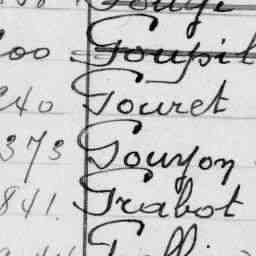 00 Goupil
240 Gouret
373 Gouyon
841. Grabot